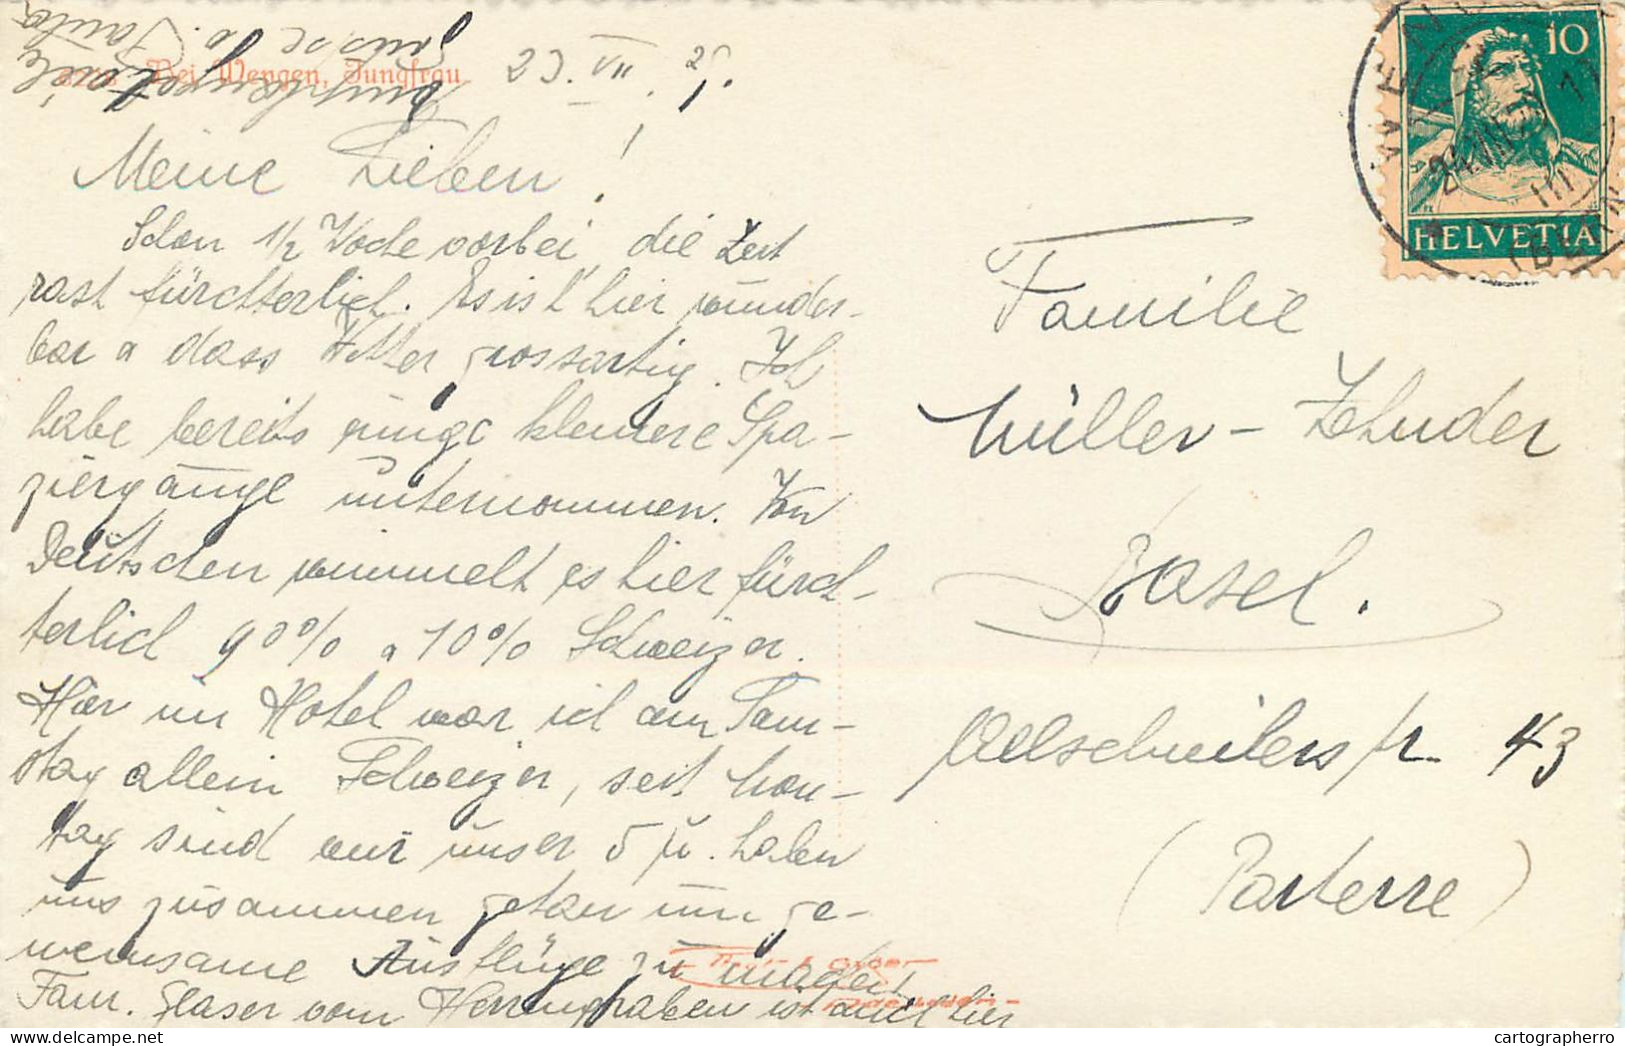 Bei Wengen, Jungfrau
23. VII. 29.
Meine Lieben!
Schon 1/2 Woche vorbei, die Zeit
rast fürchterlich. Es ist hier wunder-
bar u dass Wetter grossartig. Ich
habe bereits einige kleinere Spa-
ziergänge unternommen. Von
Deutschen wimmelt es hier fürch-
terlich 90% u 10% Schweizer.
Hier im Hotel war ich am Sam-
stag allein Schweizer, seit Mon-
tag sind wir unser 5 u. haben
uns zusammen getan um ge-
meinsame Ausflüge zu machen,
Fam. Glaser vom Herrengraben ist auch hier
HELVETIA
10
WENGEN
(BERN)
Familie
Müller-Zehnder
Basel.
Allschwilerstr. 43
(Parterre)
cartographerro